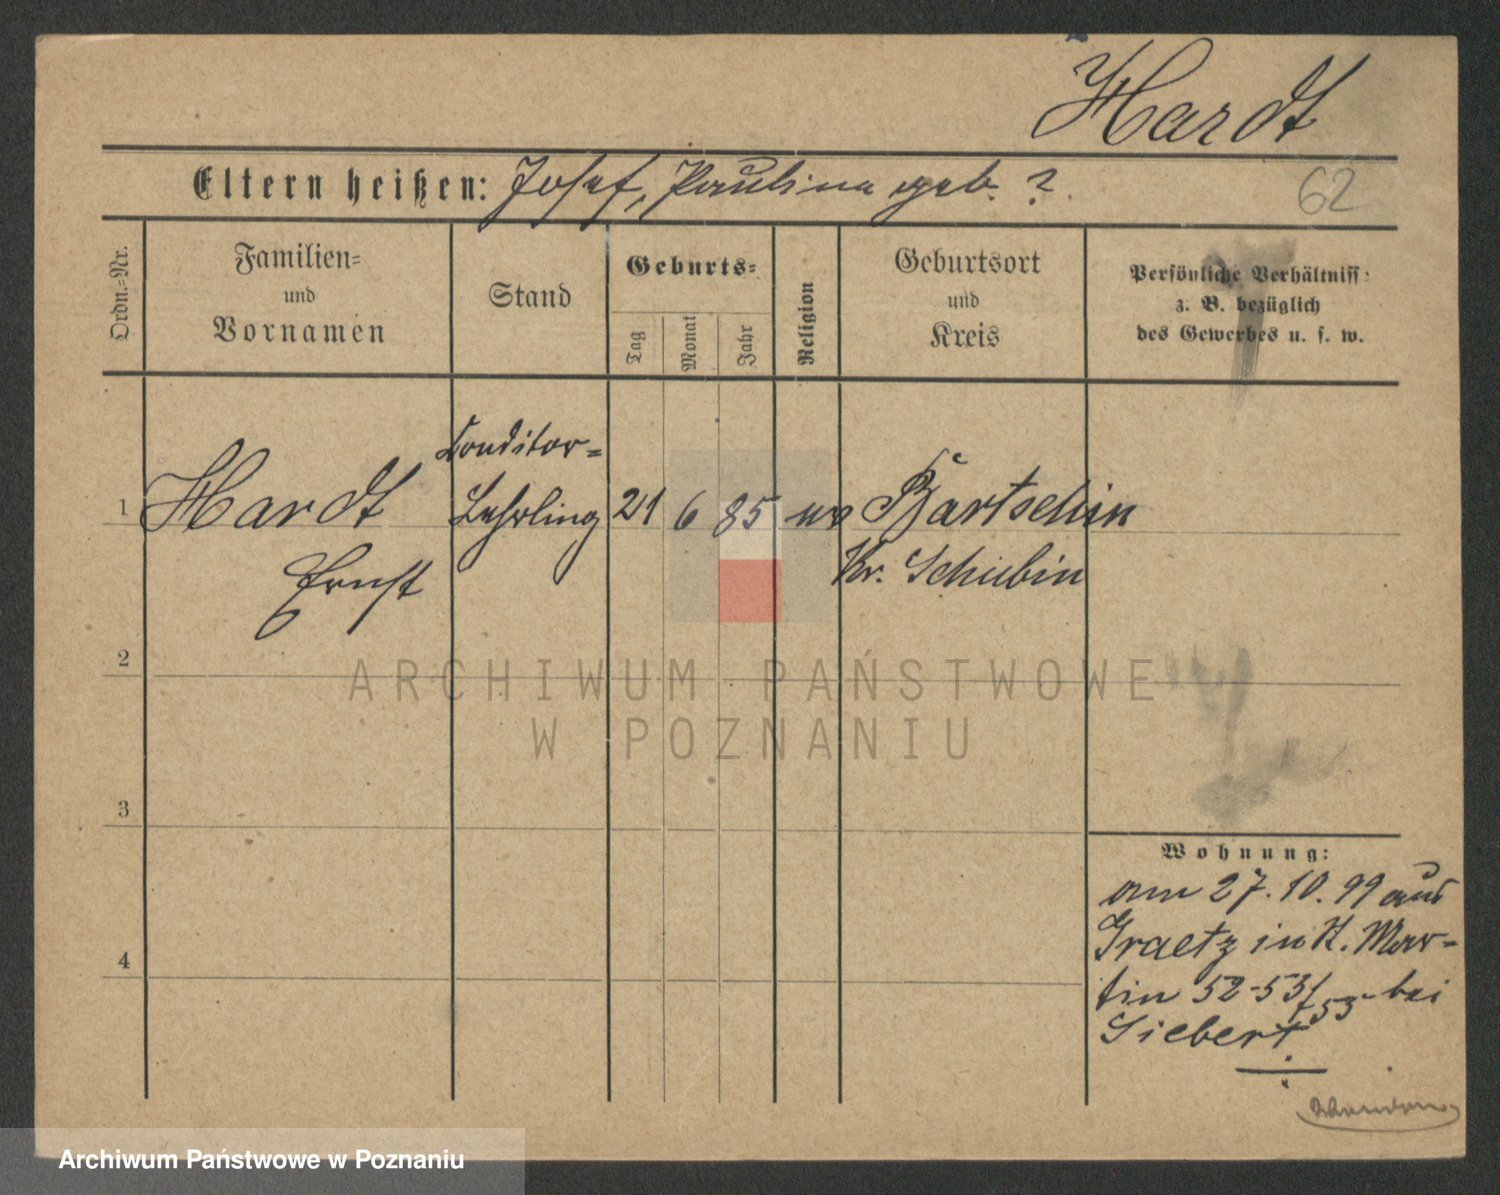 Hardt
Eltern heißen: Josef, Paulina geb. ?
62
Ordn.=Nr.
Familien=
und
Vornamen
Stand
Geburts=
Tag
Monat
Jahr
Religion
Geburtsort
und
Kreis
Persönliche Verhältniss:
z. B. bezüglich
des Gewerbes u. s. w.
1
Hardt
Ernst
Conditor=
Lehrling
21
6
85
Bartschin
Kr. Schubin
2
3
4
ARCHIWUM PAŃSTWOWE
W POZNANIU
Wohnung:
am 27.10.99 aus
Graetz in St. Mar-
tin 52-53/53 bei
Siebert
Archiwum Państwowe w Poznaniu